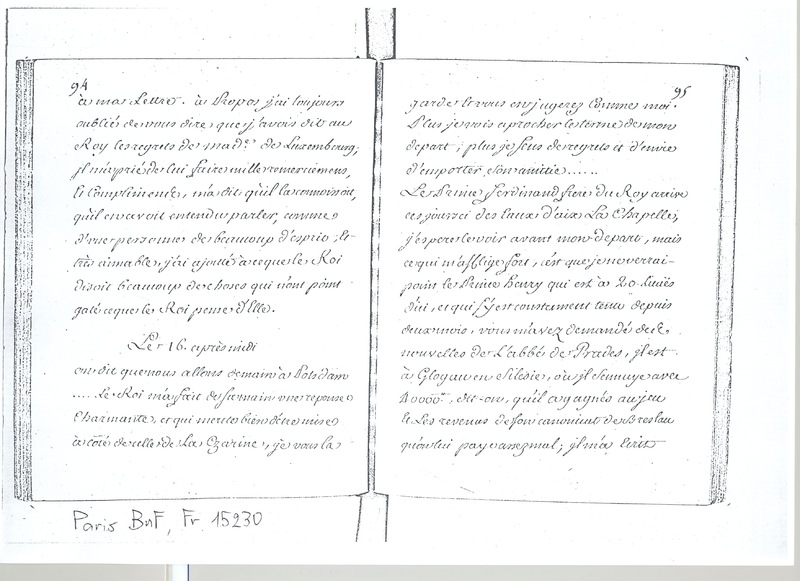 94
à ma Lettre. à Propos j'ai toujours
oublié de vous dire, que j'avois dit au
Roy les regrets de mad.e de Luxembourg;
jl m'a prié de lui faire mille remerciemens,
le compliment, m'a dit qu'il la connoissoit,
qu'il en avoit entendu parler, comme
d'une personne de beaucoup d'esprit, Et
très aimable, j'ai ajouté à ce que le Roi
disoit beaucoup de choses qui n'ont point
gaté ce que le Roi pense d'Elle.
Le 16. après midi
on dit que nous allons demain à Potsdam
.... Le Roi m'a fait de sa main une reponse
Charmante, et qui merite bien d'être mise
à côté de celle de La Czarine, je vous la
95
garde et vous en jugerez Comme moi.
Plus je vois aprocher le terme de mon
depart; plus je sens de regrets et d'envie
d'emporter son amitié......
Le Prince Ferdinand frere du Roy arrive
ces jours ci des Eaux d'aix La Chapelle,
j'espere le voir avant mon depart, mais
ce qui m'afflige fort, c'est que je ne verrai
point le Prince Henry qui est à 20. Lieües
d'ici, et qui s'y est constament tenu depuis
deux mois, vous m'avez demandé de
nouvelles de L'abbé de Prades, jl est
à Glogau en Silesie, où jl s'ennuye avec
40000.# dit-on, qu'il a gagnés au jeu
et Les revenus de son canonicat de Breslau
qu'on lui paye assez mal; jl m'a Ecrit
Paris BnF, Fr. 15230